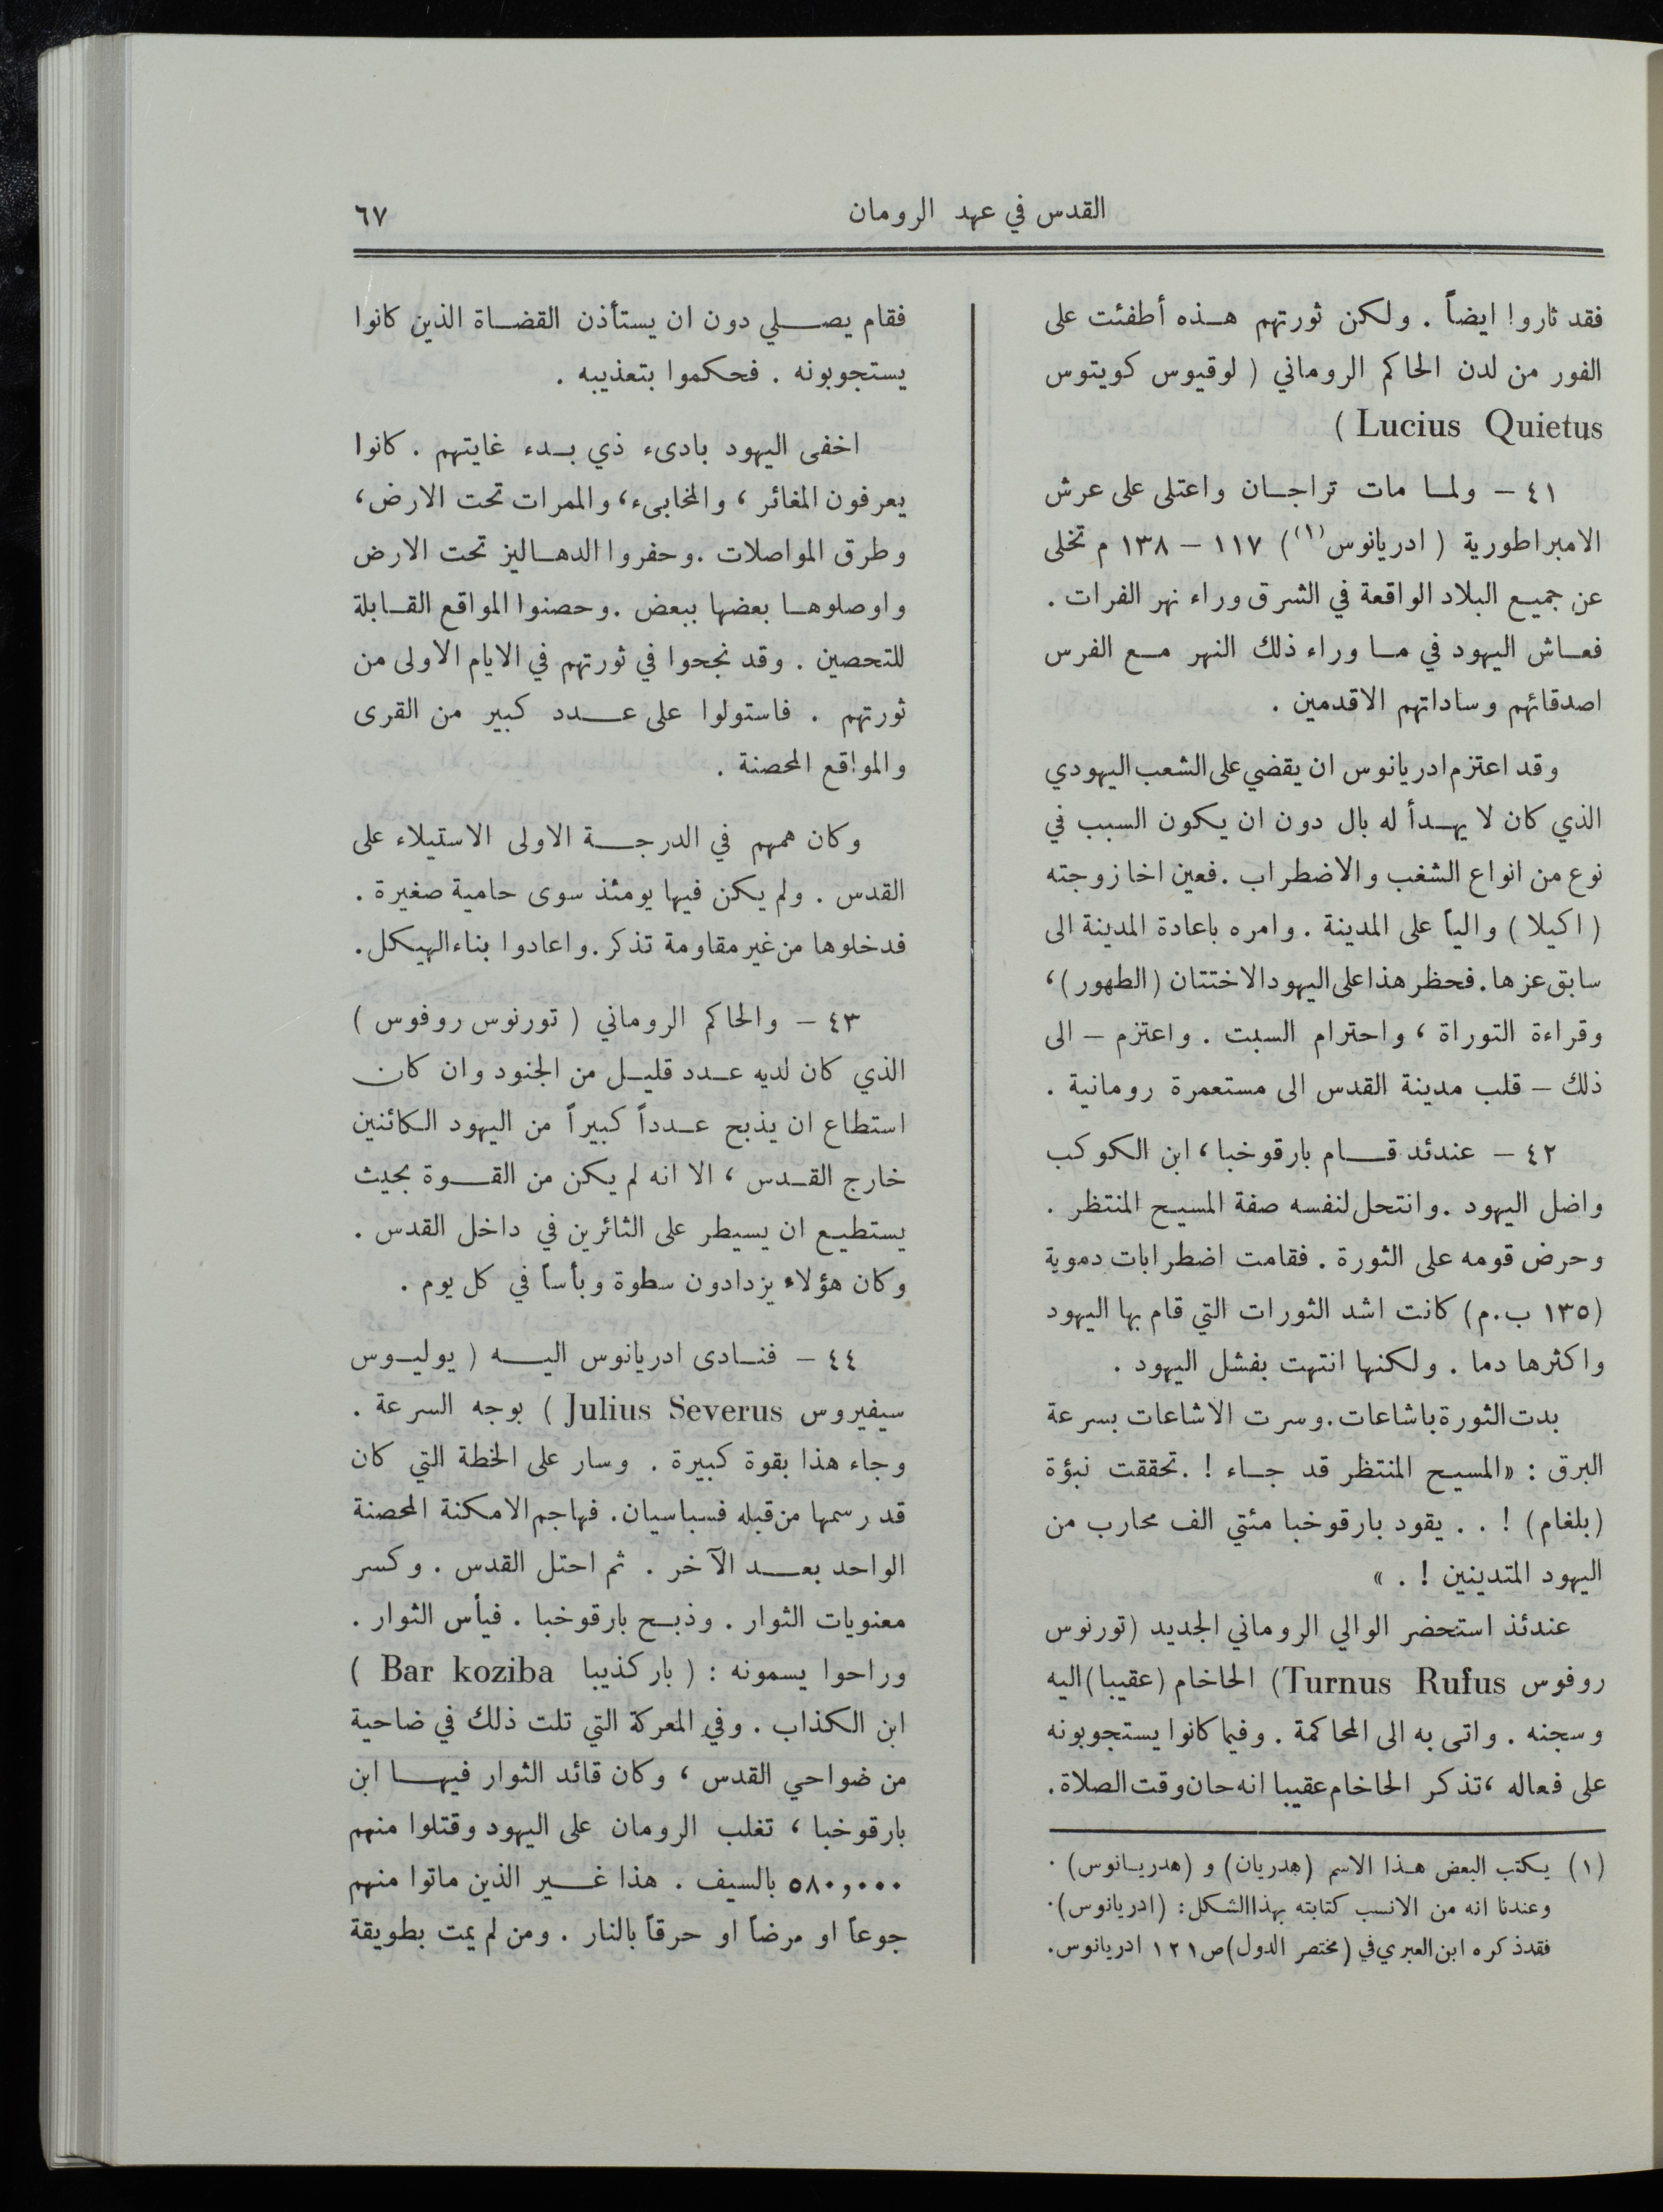 القدس في عهد الرومان
٦٧
فقد ثاروا ايضاً . ولكن ثورتهم هذه أطفئت على
الفور من لدن الحاكم الروماني ( لوقيوس كويتوس
Lucius Quietus )
٤١ – ولما مات تراجان واعتلى على عرش
الامبراطورية ( ادريانوس(١) ) ١١٧ – ١٣٨ م تخلى
عن جميع البلاد الواقعة في الشرق وراء نهر الفرات .
فعاش اليهود في ما وراء ذلك النهر مع الفرس
اصدقائهم وساداتهم الاقدمين .
وقد اعتزم ادريانوس ان يقضي على الشعب اليهودي
الذي كان لا يهدأ له بال دون ان يكون السبب في
نوع من انواع الشغب والاضطراب . فعين اخا زوجته
( اكيلا ) والياً على المدينة . وامره باعادة المدينة الى
سابق عزها . فحظر هذا على اليهود الاختتان ( الطهور ) ،
وقراءة التوراة ، واحترام السبت . واعتزم – الى
ذلك – قلب مدينة القدس الى مستعمرة رومانية .
٤٢ – عندئد قام بارقوخبا ، ابن الكوكب
واضل اليهود . وانتحل لنفسه صفة المسيح المنتظر .
وحرض قومه على الثورة . فقامت اضطرابات دموية
(١٣٥ ب.م) كانت اشد الثورات التي قام بها اليهود
واكثرها دما . ولكنها انتهت بفشل اليهود .
بدت الثورة باشاعات . وسرت الاشاعات بسرعة
البرق : «المسيح المنتظر قد جاء ! . تحققت نبؤة
(بلغام) ! . . يقود بارقوخبا مئتي الف محارب من
اليهود المتدينين ! . »
عندئذ استحضر الوالي الروماني الجديد (تورنوس
روفوس Turnus Rufus) الحاخام (عقيبا) اليه
وسجنه . واتى به الى المحاكمة . وفيما كانوا يستجوبونه
على فعاله ، تذكر الحاخام عقيبا انه حان وقت الصلاة .
(١) يكتب البعض هذا الاسم (هدريان) و (هدريانوس) .
وعندنا انه من الانسب كتابته بهذا الشكل : (ادريانوس) .
فقد ذكره ابن العبري في (مختصر الدول) ص ١٢١ ادريانوس .
فقام يصلي دون ان يستأذن القضاة الذين كانوا
يستجوبونه . فحكموا بتعذيبه .
اخفى اليهود بادىء ذي بدء غايتهم . كانوا
يعرفون المغائر ، والمخابىء ، والممرات تحت الارض ،
وطرق المواصلات . وحفروا الدهاليز تحت الارض
واوصلوها بعضها ببعض . وحصنوا المواقع القابلة
للتحصين . وقد نجحوا في ثورتهم في الايام الاولى من
ثورتهم . فاستولوا على عدد كبير من القرى
والمواقع المحصنة .
وكان همهم في الدرجة الاولى الاستيلاء على
القدس . ولم يكن فيها يومئذ سوى حامية صغيرة .
فدخلوها من غير مقاومة تذكر . واعادوا بناء الهيكل .
٤٣ – والحاكم الروماني ( تورنوس روفوس )
الذي كان لديه عدد قليل من الجنود وان كان
استطاع ان يذبح عدداً كبيراً من اليهود الكائنين
خارج القدس ، الا انه لم يكن من القوة بحيث
يستطيع ان يسيطر على الثائرين في داخل القدس .
وكان هؤلاء يزدادون سطوة وبأساً في كل يوم .
٤٤ – فنادى ادريانوس اليه ( يوليوس
سيفيروس Julius Severus ) بوجه السرعة .
وجاء هذا بقوة كبيرة . وسار على الخطة التي كان
قد رسمها من قبله فسباسيان . فهاجم الامكنة المحصنة
الواحد بعد الآخر . ثم احتل القدس . وكسر
معنويات الثوار . وذبح بارقوخبا . فيأس الثوار .
وراحوا يسمونه : ( بار كذيبا Bar koziba )
ابن الكذاب . وفي المعركة التي تلت ذلك في ضاحية
من ضواحي القدس ، وكان قائد الثوار فيها ابن
بارقوخبا ، تغلب الرومان على اليهود وقتلوا منهم
٥٨٠,٠٠٠ بالسيف . هذا غير الذين ماتوا منهم
جوعاً او مرضاً او حرقاً بالنار . ومن لم يمت بطويقة